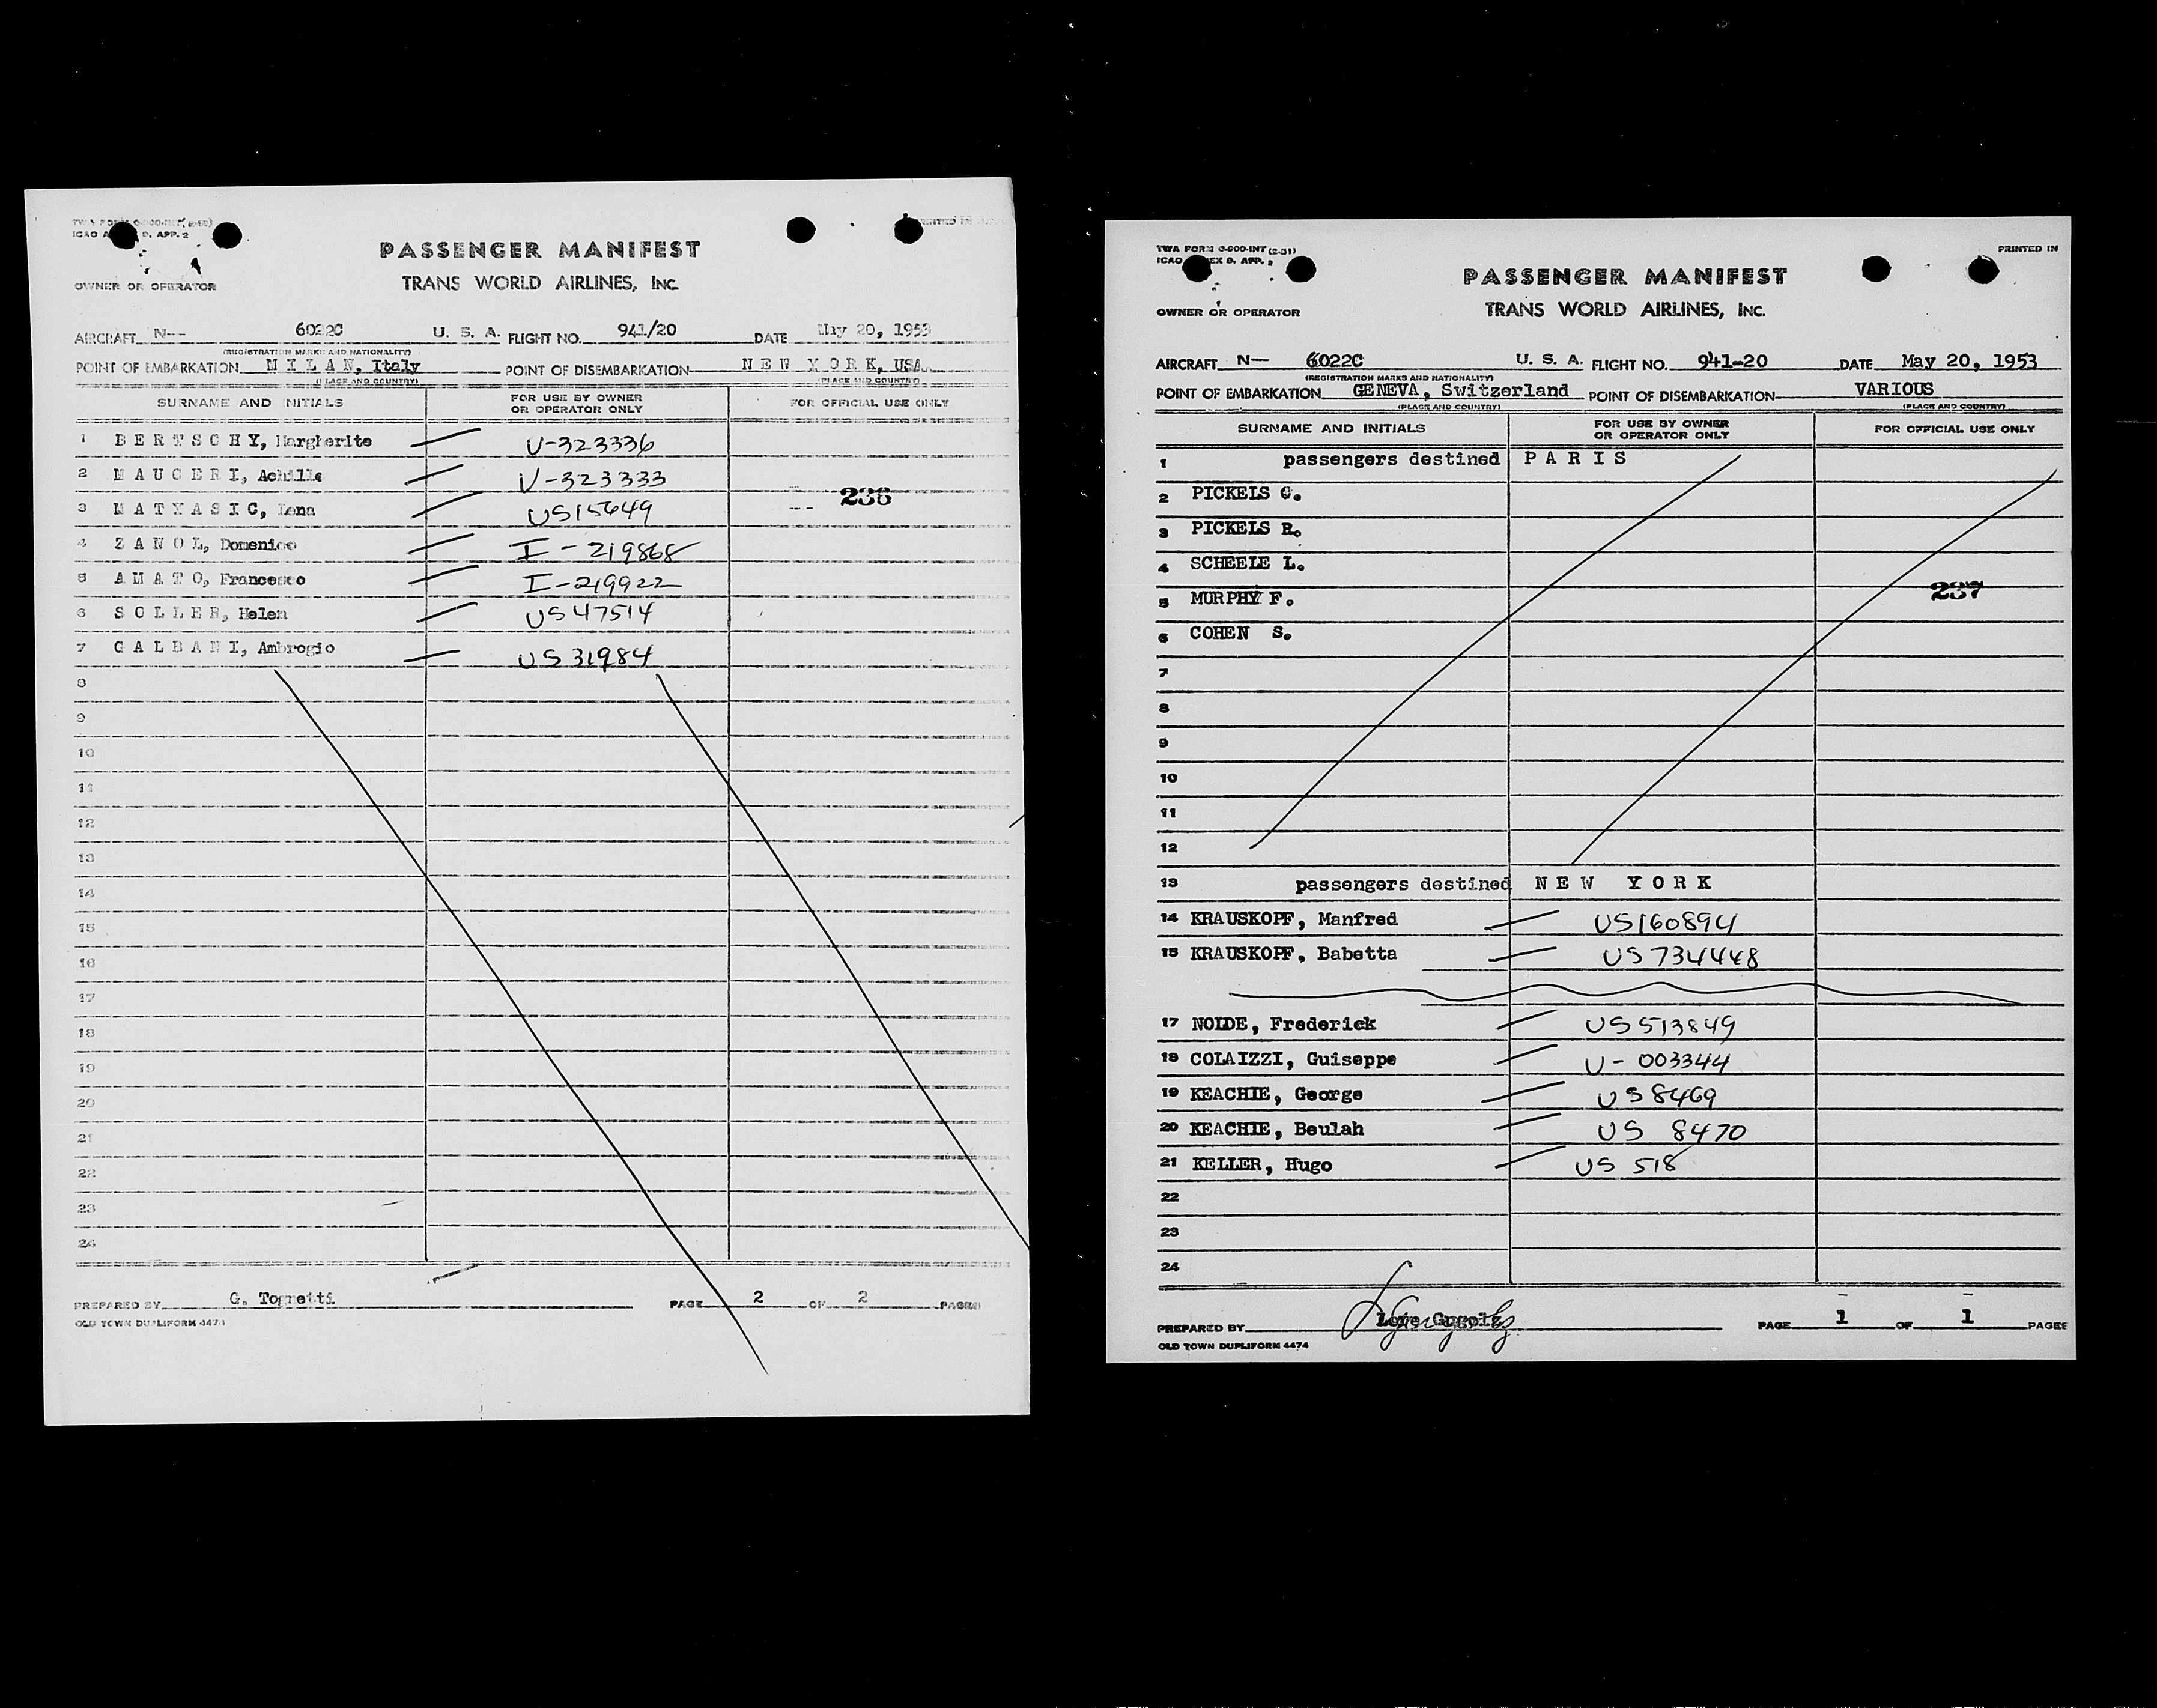 ICAO A D. APP. 2
PASSENGER MANIFEST
OWNER OR OPERATOR
TRANS WORLD AIRLINES, INC.
AIRCRAFT N-- 6022C U. S. A. FLIGHT NO. 941/20 DATE May 20, 1953
(REGISTRATION MARKS AND NATIONALITY)
POINT OF EMBARKATION M I L A N, Italy POINT OF DISEMBARKATION N E W Y O R K, USA.
(PLACE AND COUNTRY) (PLACE AND COUNTRY)
SURNAME AND INITIALS FOR USE BY OWNER OR OPERATOR ONLY FOR OFFICIAL USE ONLY
1 B E R T S C H Y, Margherite V-323336
2 M A U C E R I, Achille V-323333
236
3 M A T Y A S I C, US15649
4 Z A N O L, Domenico I-219868
5 A M A T O, Francesco I-219922
6 S O L L E R, Helen US47514
7 G A L B A N I, Ambrogio US31984
8
9
10
11
12
13
14
15
16
17
18
19
20
21
22
23
24
PREPARED BY G. Tognetti PAGE 2 OF 2 PAGES
OLD TOWN DUPLIFORM 4474
TWA FORM O-600-INT (2-51) PRINTED IN
ICAO EX 9, APP. 2
PASSENGER MANIFEST
OWNER OR OPERATOR
TRANS WORLD AIRLINES, INC.
AIRCRAFT N— 6022C U. S. A. FLIGHT NO. 941-20 DATE May 20, 1953
(REGISTRATION MARKS AND NATIONALITY)
POINT OF EMBARKATION GENEVA, Switzerland POINT OF DISEMBARKATION VARIOUS
(PLACE AND COUNTRY) (PLACE AND COUNTRY)
SURNAME AND INITIALS FOR USE BY OWNER OR OPERATOR ONLY FOR OFFICIAL USE ONLY
1 passengers destined P A R I S
2 PICKELS G.
3 PICKELS R.
4 SCHEELE L.
5 MURPHY F.
237
6 COHEN S.
7
8
9
10
11
12
13 passengers destined N E W Y O R K
14 KRAUSKOPF, Manfred US160894
15 KRAUSKOPF, Babetta US734448
17 NOLDE, Frederick US513849
18 COLAIZZI, Guiseppe V-003344
19 KEACHIE, George US8469
20 KEACHIE, Beulah US 8470
21 KELLER, Hugo US 518
22
23
24
PREPARED BY Lore Gugolz PAGE 1 OF 1 PAGES
OLD TOWN DUPLIFORM 4474